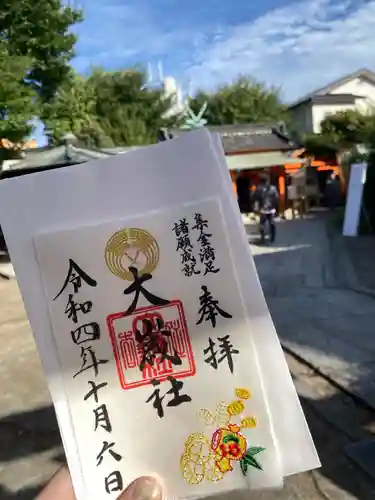 集金満足
諸願成就
奉拝
大歳社
令和四年十月六日